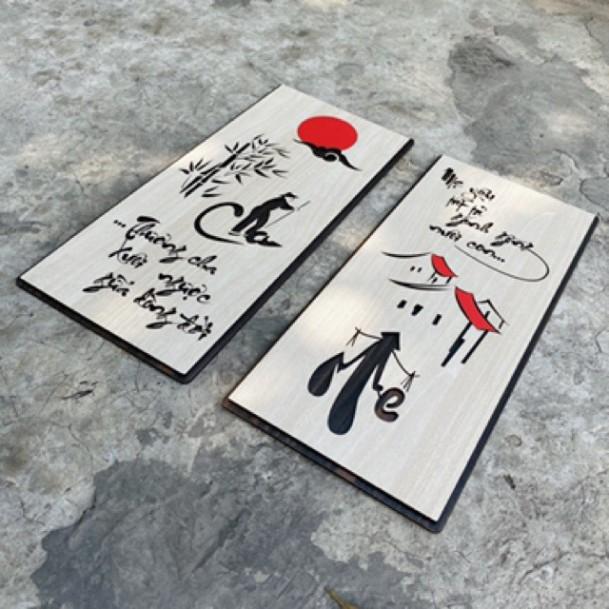 Cha
... Thương cha
lưới ngược
giữa dòng đời
Mẹ yêu
tảo tần
gánh gồng
nuôi con...
Mẹ